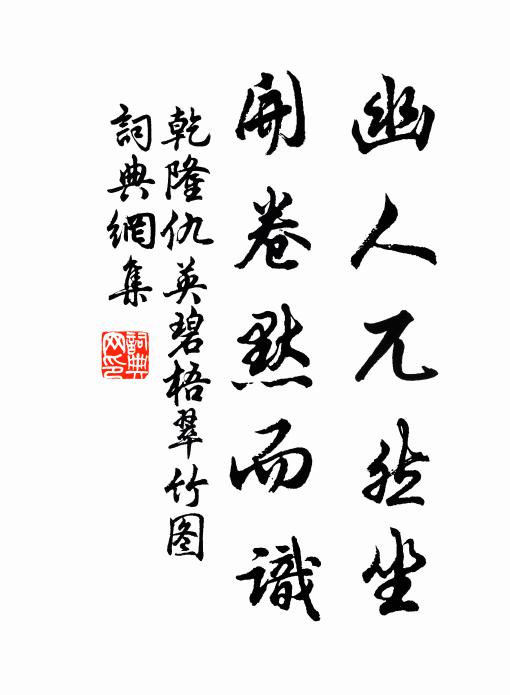 幽人兀然坐
開卷默而識
乾隆仇英碧梧翠竹图
詞典網集
詞典網印